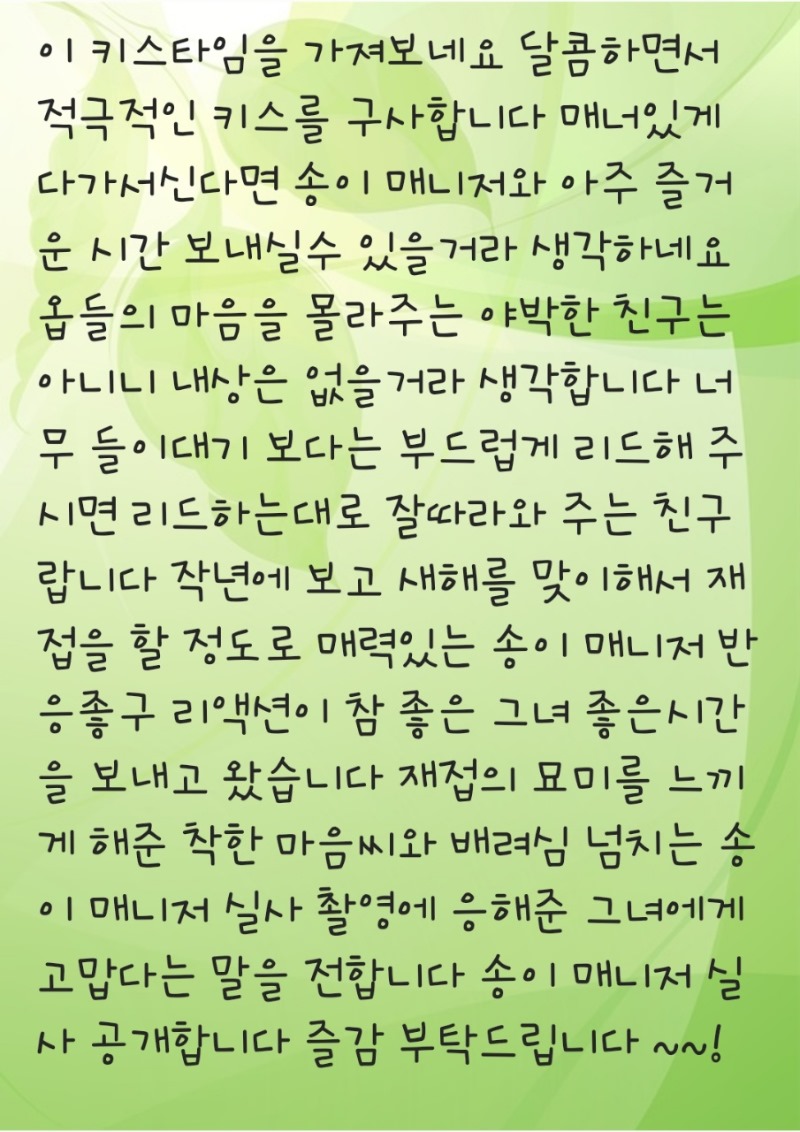 이 키스타임을 가져보네요 달콤하면서
적극적인 키스를 구사합니다 매너있게
다가서신다면 송이 매니저와 아주 즐거
운 시간 보내실수 있을거라 생각하네요
옵들의 마음을 몰라주는 야박한 친구는
아니니 내상은 없을거라 생각합니다 너
무 들이대기 보다는 부드럽게 리드해 주
시면 리드하는대로 잘따라와 주는 친구
랍니다 작년에 보고 새해를 맞이해서 재
접을 할 정도로 매력있는 송이 매니저 반
응좋구 리액션이 참 좋은 그녀 좋은시간
을 보내고 왔습니다 재접의 묘미를 느끼
게 해준 착한 마음씨와 배려심 넘치는 송
이 매니저 실사 촬영에 응해준 그녀에게
고맙다는 말을 전합니다 송이 매니저 실
사 공개합니다 즐감 부탁드립니다 ~~!